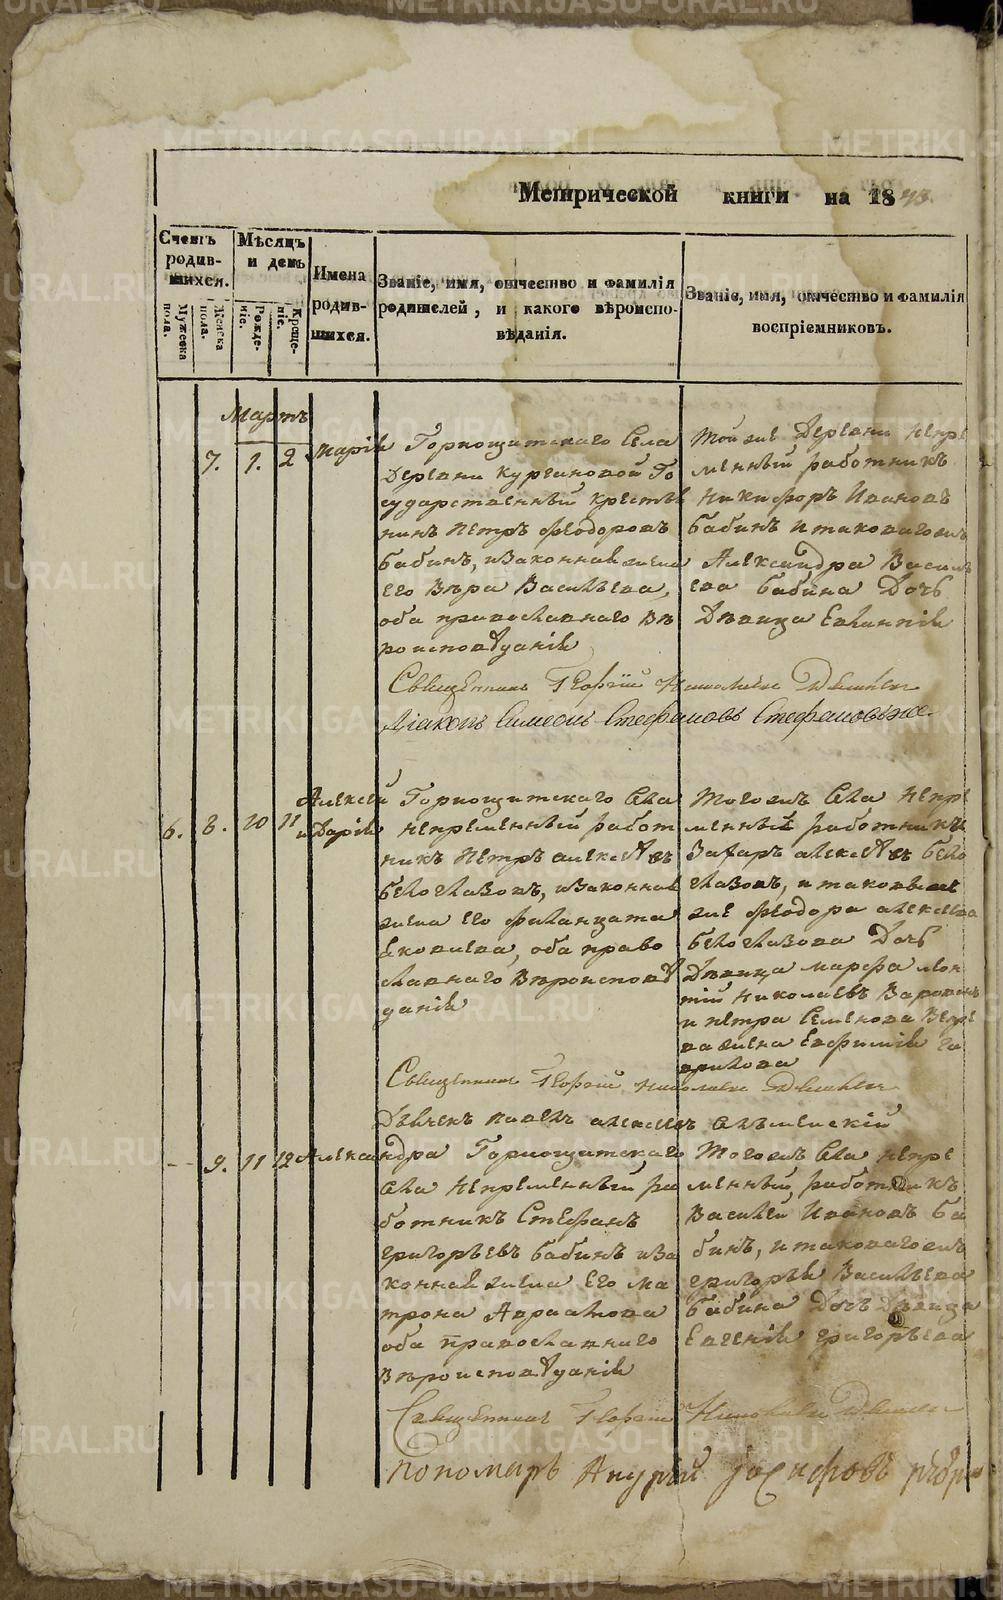 Метрической книги на 1843.
Счетъ родив-шихся.
Мужеска пола.
Женска пола.
Мѣсяцъ и день
Рожде-ніе.
Креще-ніе.
Имена родив-шихся.
Званіе, имя, отчество и фамилія
родителей, и какого вѣроиспо-
вѣданія.
Званіе, имя, отчество и фамилія
воспріемниковъ.
Мартъ
7. 1. 2
Марія
Горнощитскаго Села
Деревни Кургановой Го
сударственный крестья
нинъ Петръ Феодоровъ
бабинъ, изаконная жена
его Вѣра Васильева,
оба православнаго вѣ
роисповѣданія
Той же Деревни непре
менный работникъ
Никифоръ Ивановъ
бабинъ и таковагожъ
Александра Василь
ева бабина Дочь
Дѣвица Евлампія
Священникъ Георгій Николаевъ
Діаконъ Симеонъ Стефановъ Стефановъ же.
6. 8. 10 11
Алексей
и Дарія
Горнощитскаго Села
непременный работ
никъ Петръ алексеевъ
белоглазовъ, изаконная
жена его филанцата
яковлева, оба право
славнаго вѣроисповѣ
данія
Тогожъ Села непре
менный работникъ
Захаръ алексеевъ бело
глазовъ, и таковые
же феодора алексеева
белоглазова Дочь
Дѣвица марфа
Николаевъ
и петра Семенова
жена Евфимія Га
врилова
Священникъ Георгій Николаевъ
Дьячекъ павелъ алексеевъ
9. 11 12
Александра
Горнощитскаго
Села непременный ра
ботникъ Стефанъ
григорьевъ бабинъ иза
конная жена его ма
трона Авраамова
оба православнаго
вѣроисповѣданія
Тогожъ Села непре
менный работникъ
Василей Ивановъ ба
бинъ, и таковагожъ
григорья Васильева
бабина Дочь Дѣвица
Евгенія григорьева
Священникъ Георгій Николаевъ
пономарь Андрей Іосифовъ